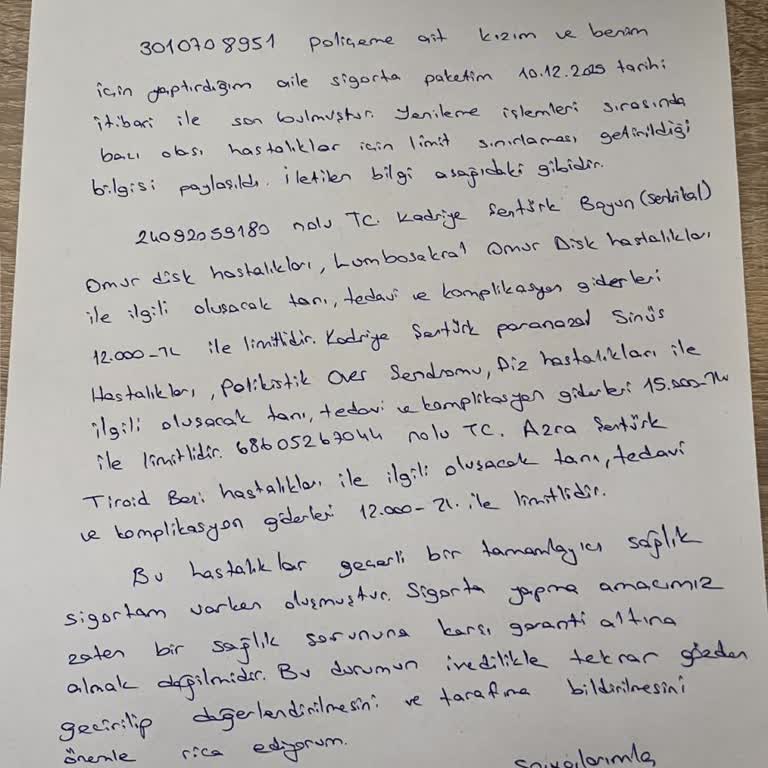 3010708951 poliçeme ait kızım ve benim
için yaptırdığım aile sigorta paketim 10.12.2025 tarihi
itibari ile son bulmuştur. Yenileme işlemleri sırasında
bazı olası hastalıklar için limit sınırlaması getirildiği
bilgisi paylaşıldı. İletilen bilgi aşağıdaki gibidir.
24092059180 nolu TC. Kadriye Şentürk Boyun (Servikal)
Omur disk hastalıkları, Lumbosakral Omur Disk hastalıkları
ile ilgili oluşacak tanı, tedavi ve komplikasyon giderleri
12.000-TL ile limitlidir. Kadriye Şentürk paranazal Sinüs
Hastalıkları, Polikistik Over Sendromu, Diz hastalıkları ile
ilgili oluşacak tanı, tedavi ve komplikasyon giderleri 15.000-TL
ile limitlidir. 68605267044 nolu TC. Azra Şentürk
Tiroid Bezi hastalıkları ile ilgili oluşacak tanı, tedavi
ve komplikasyon giderleri 12.000-TL. ile limitlidir.
Bu hastalıklar geçerli bir tamamlayıcı sağlık
sigortam varken oluşmuştur. Sigorta yapma amacımız
zaten bir sağlık sorununa karşı garanti altına
almak değilmidir. Bu durumun ivedilikle tekrar gözden
geçirilip değerlendirilmesini ve tarafıma bildirilmesini
önemle rica ediyorum.
Saygılarımla